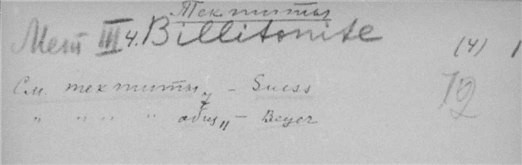 Тектиты
Мет III 4. Billitonite (4) 1
См. тектиты„ - Suess 12
" " " " общ„ - Beyer